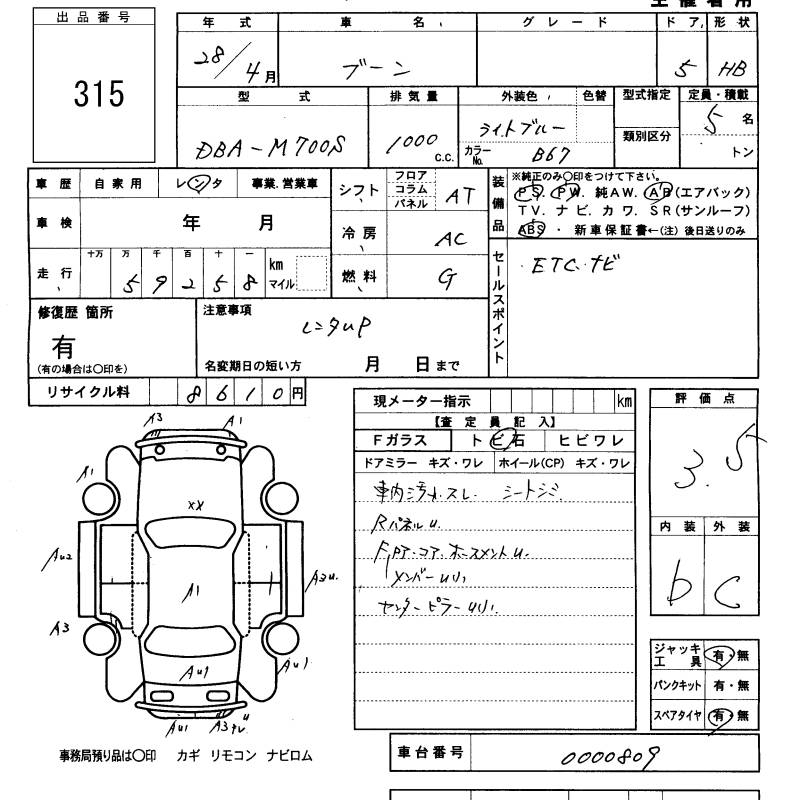 出品番号
315
年 式
車 名
グレード
ドア
形 状
28/4月
ブーン
5
HB
型 式
排気量
外装色
色替
型式指定
定員・積載
DBA-M700S
1000 c.c.
ライトブルー
カラーNo. B67
類別区分
5名
トン
車 歴
自 家 用
レンタ
事業.営業車
シフト
フロア
コラム
パネル
AT
装備品
※純正のみ〇印をつけて下さい。
PS. PW. 純AW. AB(エアバック)
TV. ナビ. カワ. SR(サンルーフ)
ABS ・ 新車保証書←(注) 後日送りのみ
車 検
年 月
冷 房
AC
走 行
十万 万 千 百 十 一
59258
km
マイル
燃 料
G
セールスポイント
ETC.ナビ
修復歴 箇所
有
(有の場合は〇印を)
注意事項
レンタup
名変期日の短い方 月 日まで
リサイクル料
8610円
現メーター指示 km
【査 定 員 記 入】
Fガラス
トビ石
ヒビワレ
ドアミラー キズ・ワレ
ホイール(CP) キズ・ワレ
車内汚れ.スレ. シートシミ.
Rパネルu.
メンバーuリ.
センターピラーuリ.
評 価 点
3.5
内 装
外 装
b
C
ジャッキ工具 有・無
パンクキット 有・無
スペアタイヤ 有・無
A3
A1
A1
XX
Au2
A1
A3
Au1
Au1
Au1
A3
事務局預り品は〇印 カギ リモコン ナビロム
車台番号
0000809